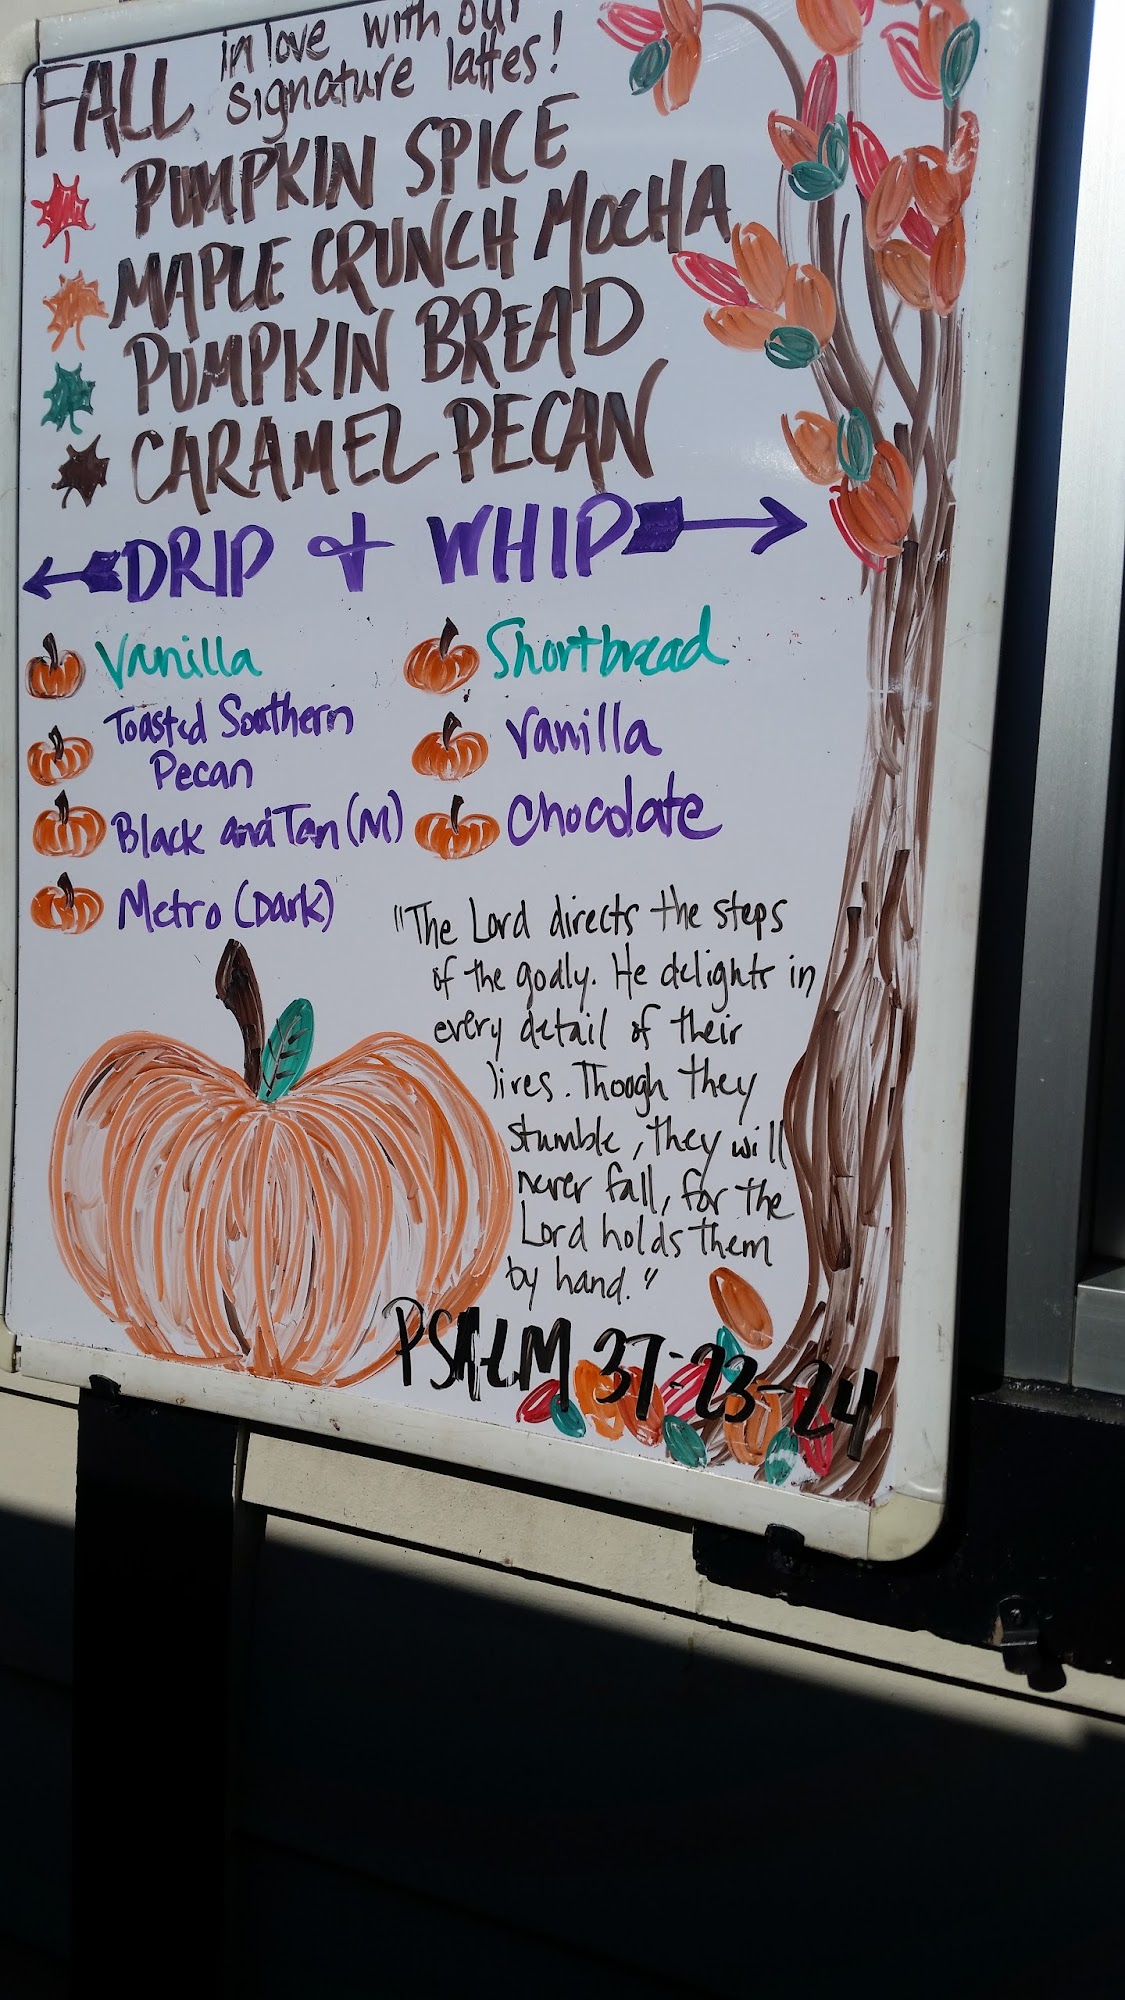 FALL in love with our
signature lattes!
PUMPKIN SPICE
MAPLE CRUNCH MOCHA
PUMPKIN BREAD
CARAMEL PECAN
DRIP & WHIP
Vanilla
Toasted Southern
Pecan
Black and Tan (M)
Metro (Dark)
Shortbread
Vanilla
Chocolate
"The Lord directs the steps
of the godly. He delights in
every detail of their
lives. Though they
stumble, they will
never fall, for the
Lord holds them
by hand."
PSALM 37-23-24